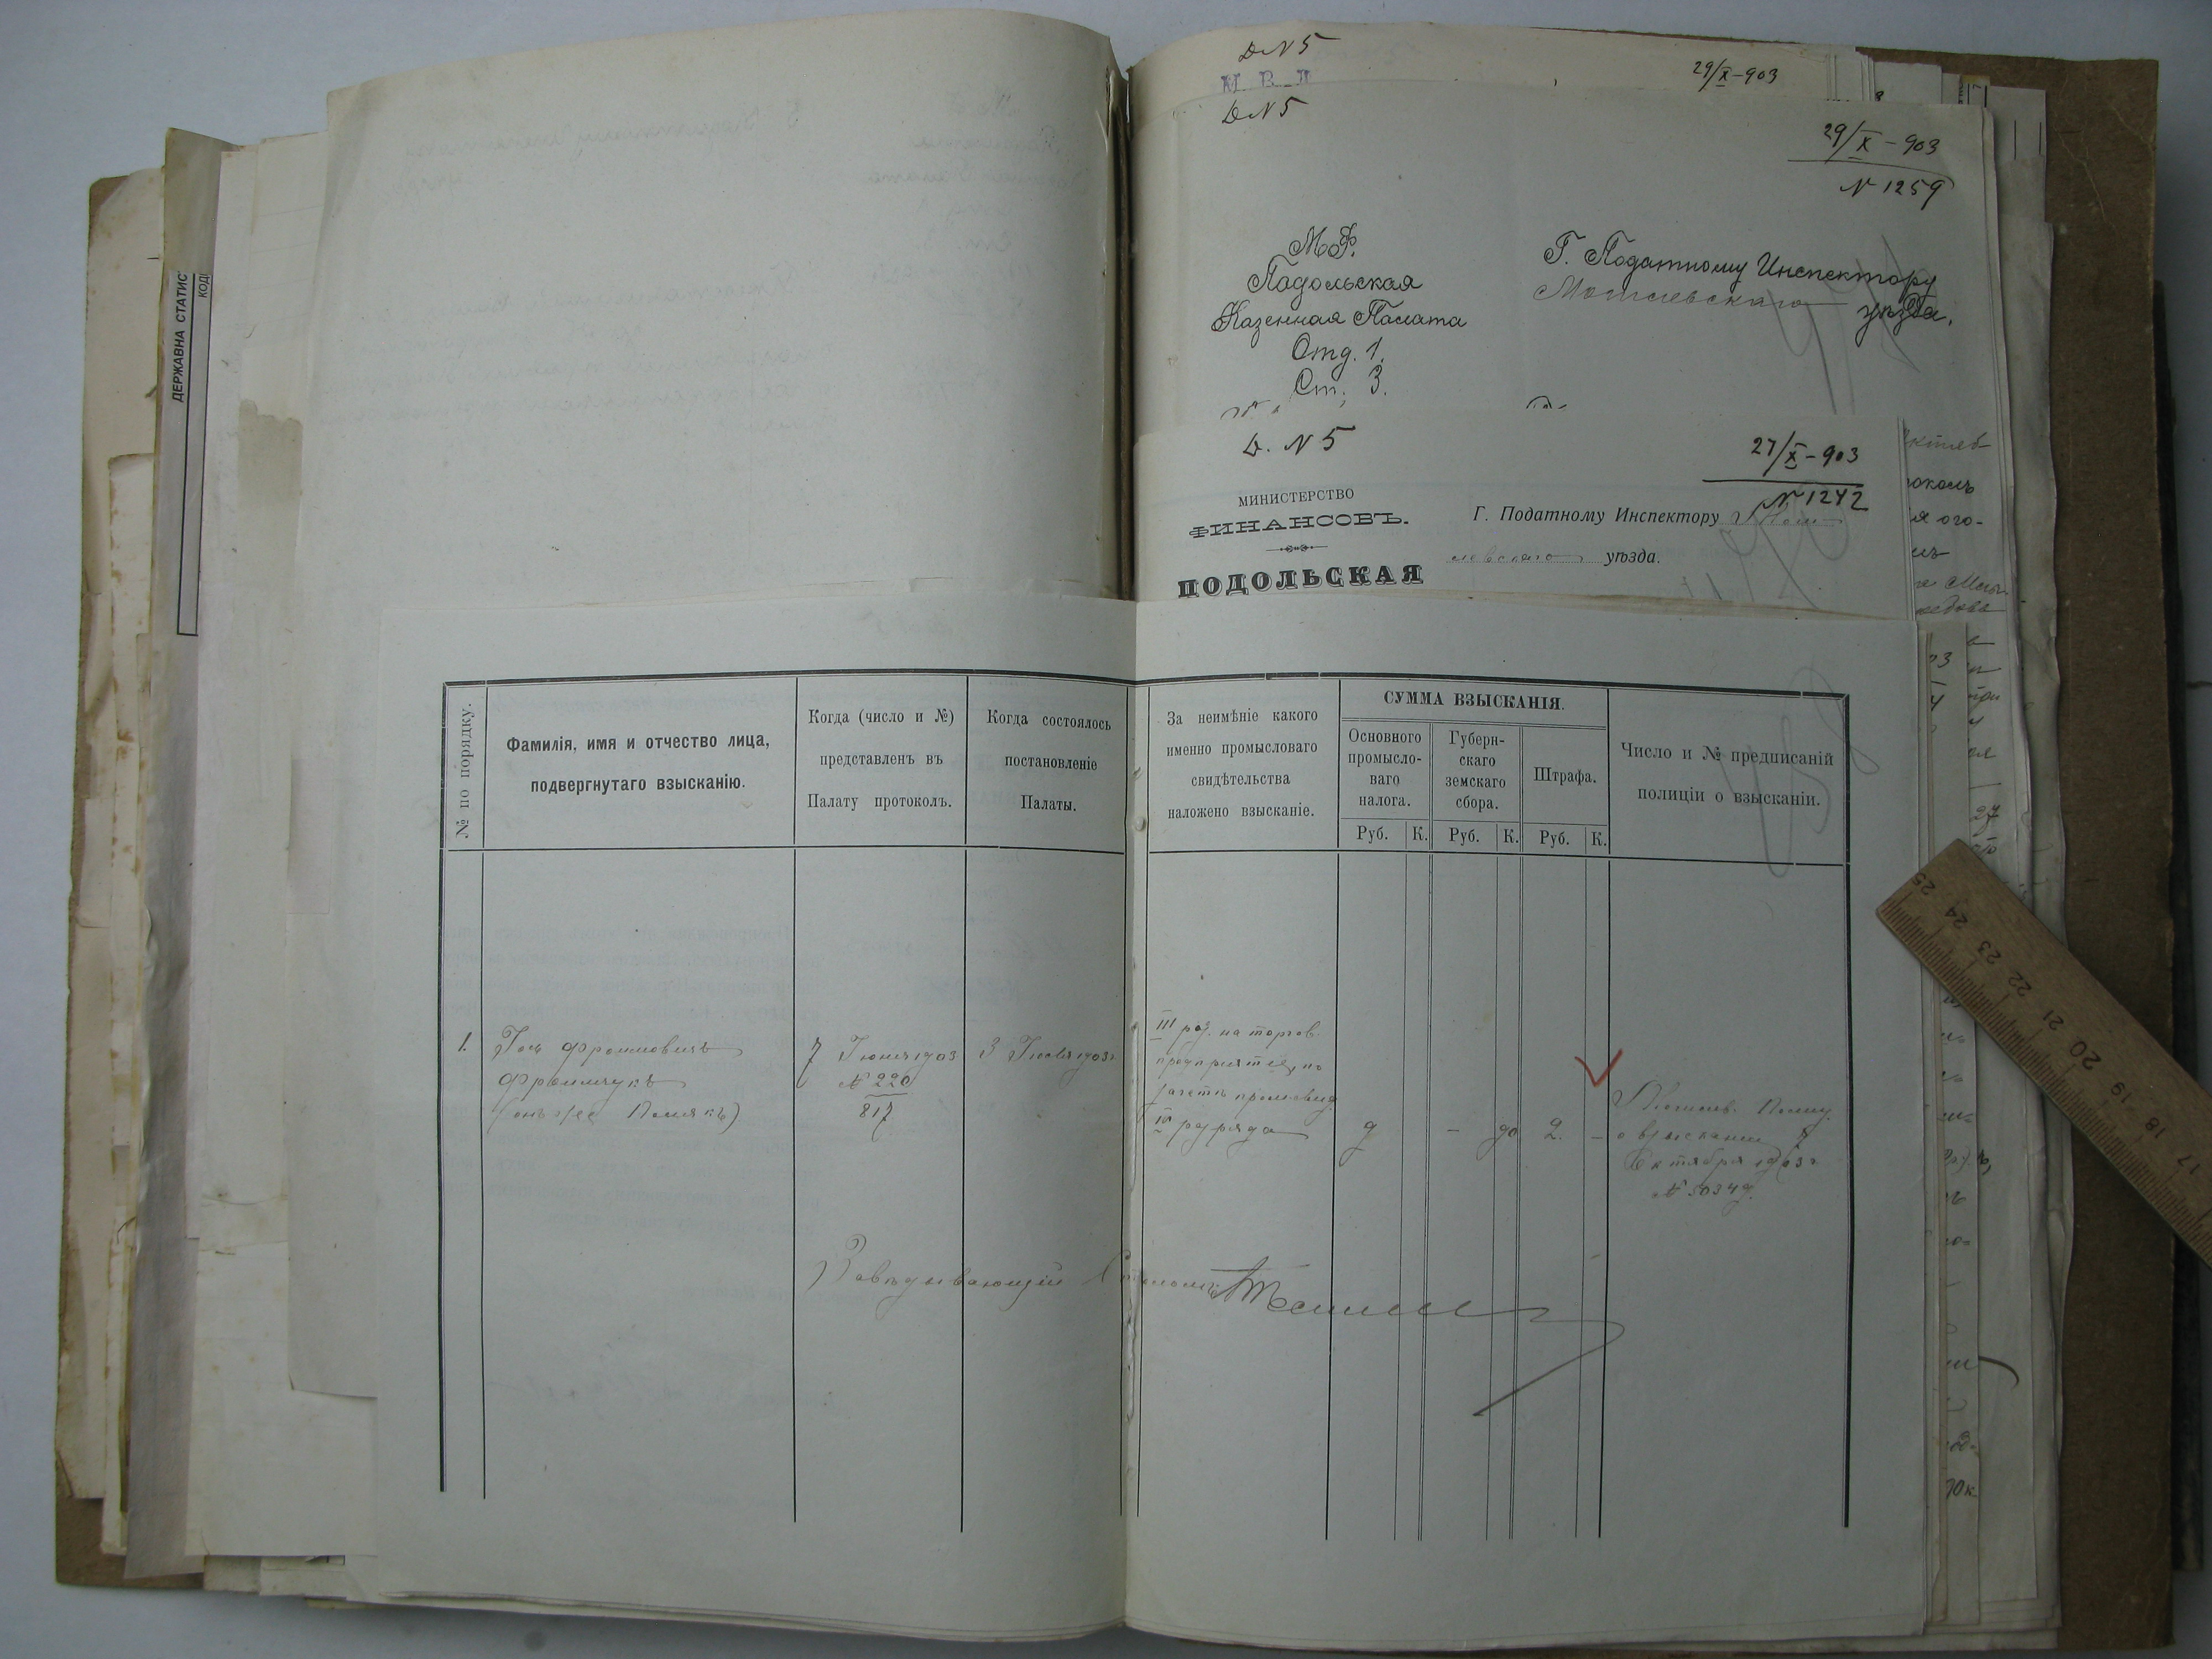 ДЕРЖАВНА СТАТИС
КОД
Д N 5
М. В. Д
29/X-903
Д N 5
29/X-903
N 1259
М. Ф.
Подольская
Казенная Палата
Отд. 1.
Ст. 3.
Г. Податному Инспектору
Могилевскаго уѣзда.
Д. N 5
27/X-903
N 1242
МИНИСТЕРСТВО
ФИНАНСОВЪ.
ПОДОЛЬСКАЯ
Г. Податному Инспектору Моги
левскаго уѣзда.
№ по порядку.
Фамилія, имя и отчество лица,
подвергнутаго взысканію.
Когда (число и №)
представленъ въ
Палату протоколъ.
Когда состоялось
постановленіе
Палаты.
За неимѣніе какого
именно промысловаго
свидѣтельства
наложено взысканіе.
СУММА ВЗЫСКАНІЯ.
Основного
промысло-
ваго
налога.
Губерн-
скаго
земскаго
сбора.
Штрафа.
Руб. К. Руб. К. Руб. К.
Число и № предписаній
полиціи о взысканіи.
1.
Фроимовичъ
Фроимчукъ
(онъ же Полякъ)
7 Іюня 1903
N 220
817
3 Іюля 1903 г
III раз. на торгов.
предпріятіе, по
IV разряда
9 - 90 2. -
Могилев. Полиц.
о взысканіи 7
Октября 1903 г
N 30349.
Завѣдывающій Столомъ
25 24 23 22 21 20 19 18 17